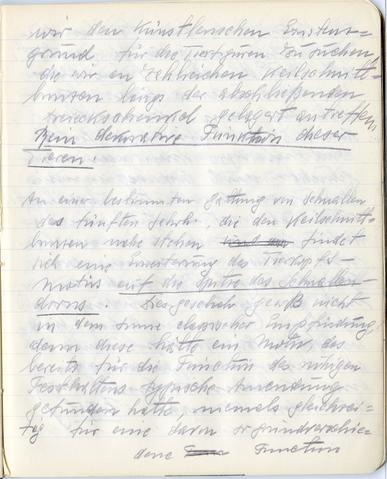 wir den Künstlerischen Existenz-
grund für die Tierfiguren zu suchen,
die wir an zahlreichen Keilschnitt-
bronzen längs der abschließenden
gelagert antreffen.
Rein dekorative Funktion dieser
Tieren!
An einer bestimmten Gattung von Schnallen
des fünften Jahrh., die den Keilschnitt-
bronzen nahe stehen findet
sich eine Erweiterung des Tierkopf-
motivs auf die Spitze des Schnallen-
dorns. Dies geschah gewiß nicht
in dem Sinne classischer Empfindung,
denn diese hätte ein Motiv, das
bereits für die Function des ruhigen
Festhaltens typische Anwendung
gefunden hatte, niemals gleichzei-
tig für eine davon so grundverschie-
dene Function